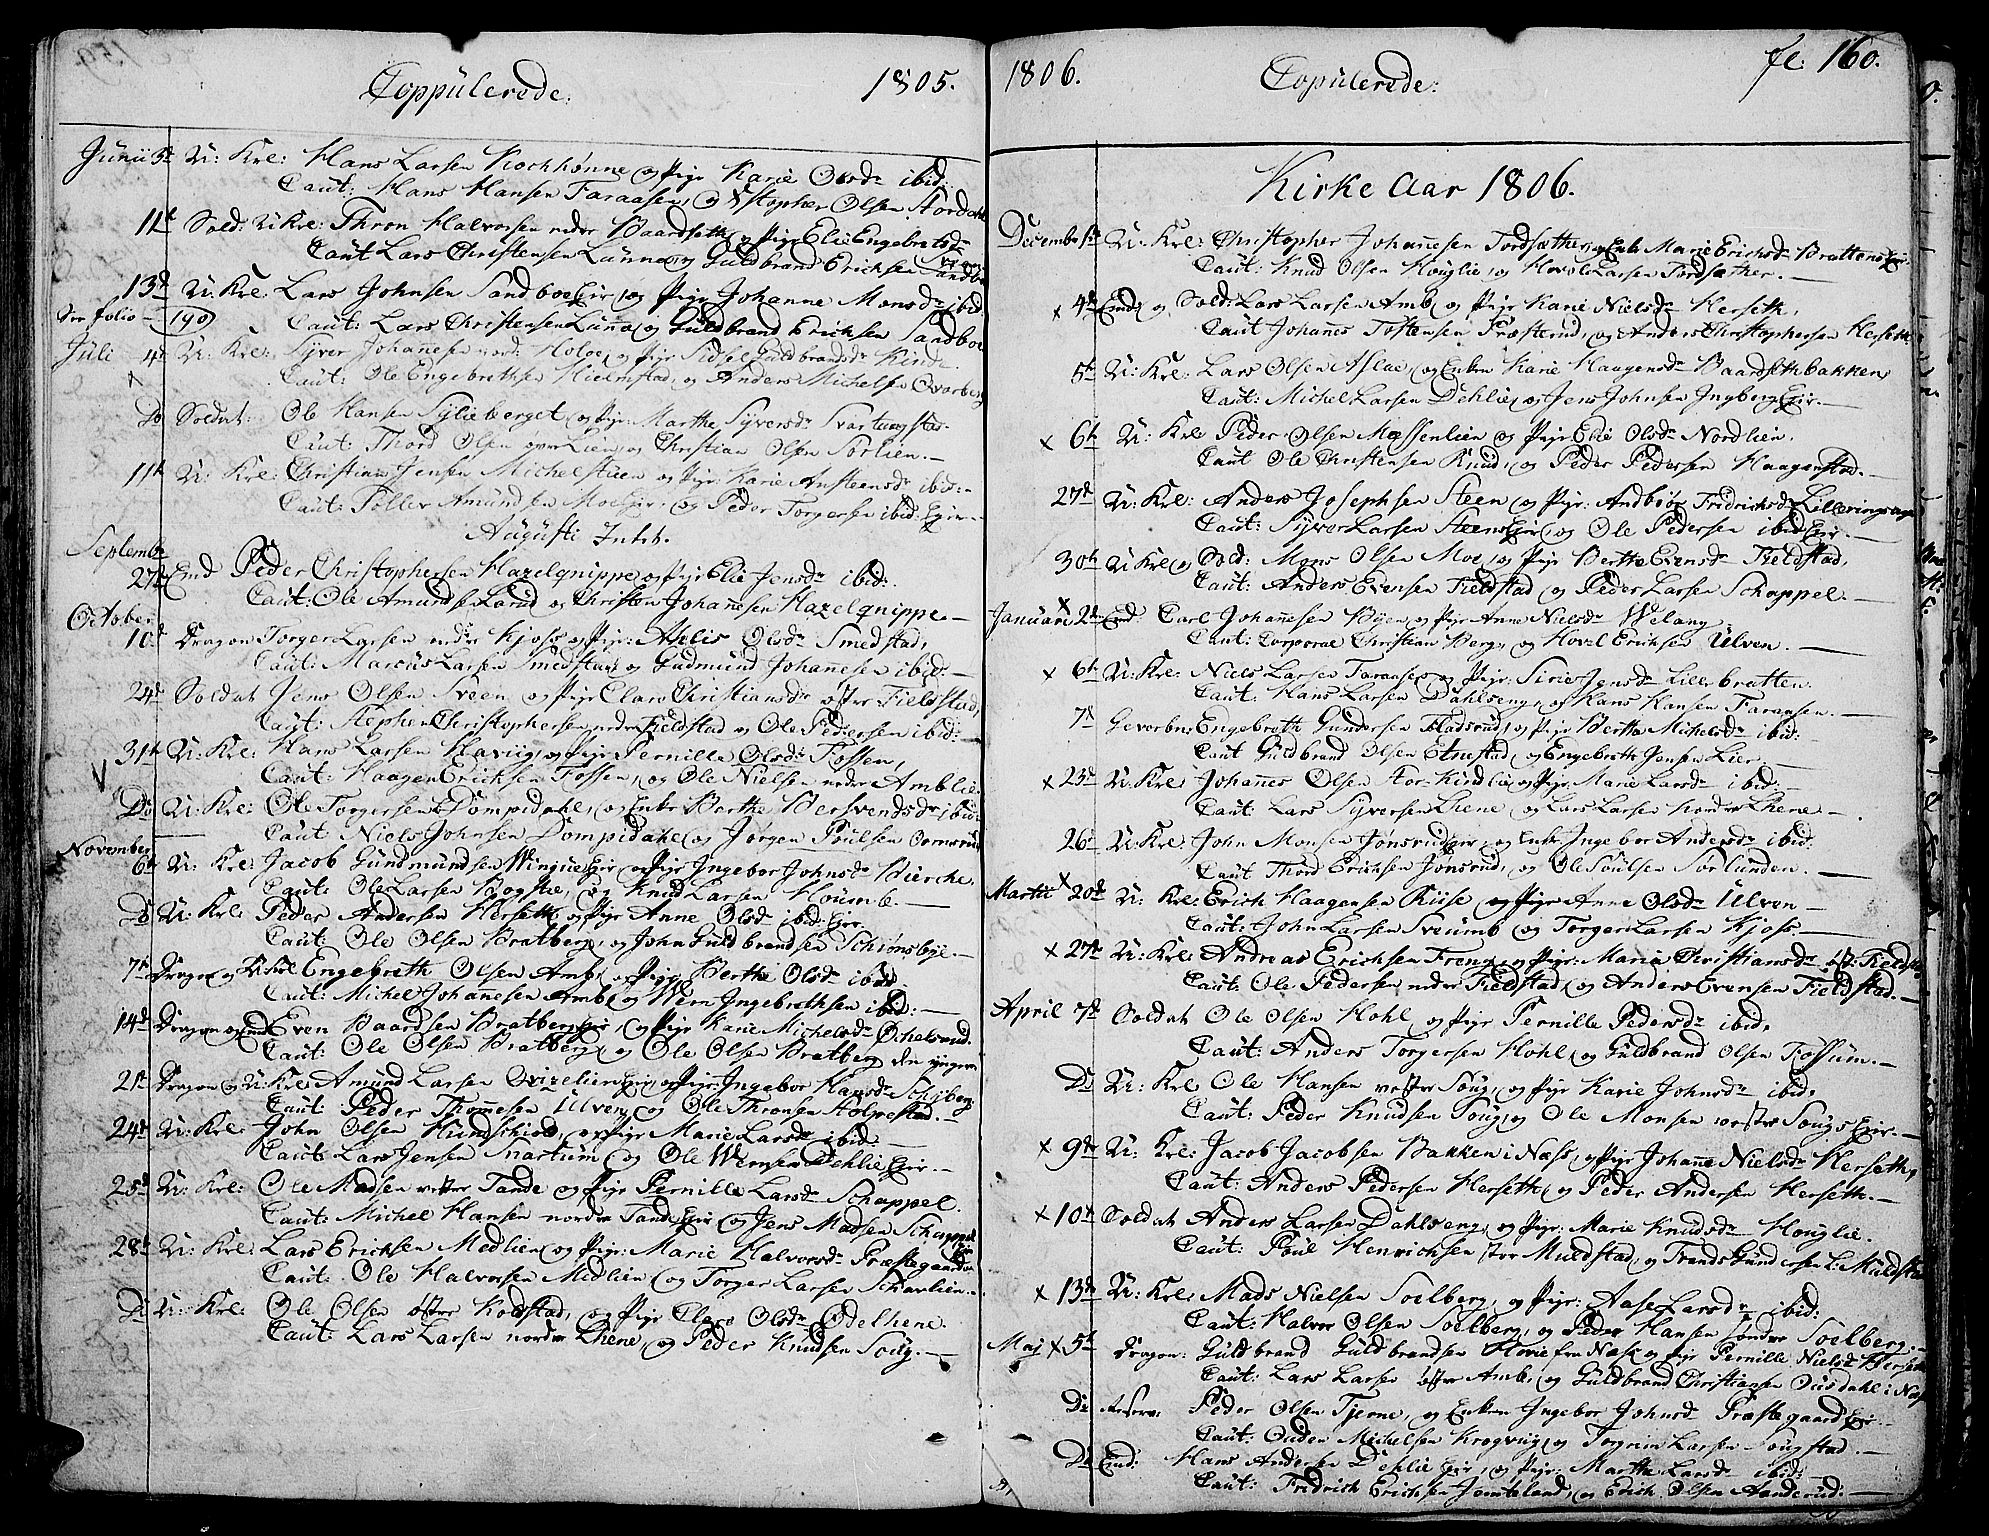 Coppulerede. 1805.
Junii 5t U: Krl: Hans Larsen Kochhønne og Pige Karie Olsdr ibid:
Caut: Hans Hansen Faraasen, og Olsen
11t Sold: U Krl: Thron Halvorsen nedre Baardseth og Pige Elie Engebretsdr
Caut Lars Christensen Lunna og Guldbrand Erichsen
13d U: Krl: Lars Johnsen Sandboe Eir, og Pige Johanne Monsdr ibid.
See folio 190 Caut: Lars Christensen Luna og Guldbrand Erichsen Sandboe
Juli 4t U: Krl: Syver Johannesen Holoe, og Pige Sidsel Guldbrandsdr Kinde
Caut: Ole Engebrethsen Hielmstad, og Anders Michelsen Overberg
Do Soldat: Ole Hansen Syljeberget og Pige: Marthe Syversdr Svartungstad.
Caut: Thord Olsen over Lien, og Christian Olsen Sørlien.
11t U: Krl: Christian Jensen Michelstuen og Pige: Karie Austeensdr ibid:
Caut: Toller Amundsen Moe Eir: og Peder Torgersen ibid: Eir.
Augusti Intet.
September
27de Emd Peder Christophersen Hazelqnippe og Pige Elie Jensdr ibid:
Caut: Ole Amundsen Larud og Christen Johannesen Hazelqnippe.
October
10d Dragon Torger Larsen nedre Kjoss og Pige: Ahlis Olsdr Smedstad,
Caut: Marcus Larsen Smedstad, og Gudmund Johannesen ibid:
24d Soldat Jens Olsen Sveen og Pige Clara Christiansdr østre Fieldstad,
Caut: Stephen Christophersen nedre Fieldstad og Ole Pedersen ibid:
31t U: Krl: Hans Larsen Havig, og Pige Pernille Olsdr Fossen,
Caut: Haagen Erichsen Fossen, og Ole Nielsen nedre Amblie
Do U: Krl: Ole Torgersen Dompidahl, og Enke Berthe Bersvendsdr ibid:
Caut Niels Johnsen Dompidahl og Jørgen Poulsen Oomsrud
November
6t U: Krl: Jacob Gudmundsen Wingiue Eir og Pige Ingebor Johnsdr Bierche,
Caut: Ole Larsen Bogstie, og Knud Larsen Houmb.
Do U: Krl: Peder Andersen Herseth og Pige Anne Olsdr ibid: Eir
Caut: Ole Olsen Bratberg, og John Guldbrandsen Schiønsbye.
7t Dragon og U: Krl Engebreth Olsen Amb, og Pige Berthe Olsdr ibid
Caut: Michel Johannesen Amb og Wern Ingebrethsen ibid:
14d Dragon og Emd Even Baardsen Bratberg Eir og Pige Karie Michelsdr Ochelsrud.
Caut: Ole Olsen Bratberg og Ole Olsen Bratberg den yngere
21t Dragon og U: Krl Amund Larsen Qvizelien Eir og Pige: Ingebor Hansdr Schiberg
Caut: Peder Thommesen Ulven, og Ole Thronsen Holmestad.
24d U: Krl: John Olsen Hundschiød, og Pige Marie Larsdr ibid.
Caut: Lars Jensen Snartum og Ole Wernsen Dehlie Eir.
25d U: Krl: Ole Madsen vestre Tande og Pige Pernille Larsdr Schappel.
Caut: Michel Hansen nordre Tande Eir og Jens Madsen Schappel
28d U: Krl: Lars Erichsen Medlien, og Pige: Marie Halvorsdr Præstegaarden
Caut: Ole Halvorsen Medlien og Torger Larsen Scharlien.
Do U: Krl: Ole Olsen østre Kodstad, og Pige Clara Olsdr Odelhene
Caut: Lars Larsen nordre Lhene, og Peder Knudsen Soug.
1806. Copulerede: fl: 160.
Kirke Aar 1806.
December 1te U: Krl: Christopher Johannesen Tordsæther, og Enke Marie Erichsdr Brattens Eir
Caut: Knud Olsen Houglie, og Hovel Larsen Tordsæther.
x 4de Emd og Sold: Lars Larsen Amb, og Pige Karie Nielsdr Herseth,
Caut Johannes Tostensen Præsterud, og Anders Christophersen Herseth
5te U: Krl: Lars Olsen Aslae, og Enken Karie Haagensdr Baardsethbakken
Caut: Michel Larsen Dehlie, og Jens Johnsen Ingberg Eir.
x 6te U: Krl Peder Olsen Messenlien og Pige Elie Olsdr Nordlien.
Caut Ole Christensen Knud, og Peder Pedersen Haagenstad.
27de U: Krl: Anders Josephsen Steen og Pige: Andbiør Fridrichsdr Lilleringsagen
Caut: Syver Larsen Steens Eir, og Ole Pedersen ibid Eir.
30te U Krl og Sold: Mons Olsen Moe, og Pige Berthe Evensdr Fieldstad,
Caut: Anders Evensen Fieldstad og Peder Larsen Schappel.
Januari x 2de Emd Carl Johannesen Byen og Pige Anne Nielsdr Welang.
Caut: Corporal Christian Berg, og Hovel Erichsen Ulven.
x 6te U: Krl: Niels Larsen Faraasen og Pige: Sirie Jensdr Lillebratten.
Caut. Hans Larsen Dahlseng, og Hans Hansen Faraasen.
7de Gevorben Engebreth Gundersen Fladsrud, og Pige Berthe Michelsdr ibid:
Caut Guldbrand Olsen Etnestad, og Engebreth Jensen Lier.
x 23de U: Krl: Johannes Olsen Stor Kindlie og Pige Marie Larsdr ibid:
Caut Lars Syversen Lhene og Lars Larsen nordre Lhene.
26de U: Krl: John Monsen Jønsrud Eir, og Enke Ingebor Andersdr ibid.
Caut Thord Erichsen Jønsrud, og Ole Poulsen Sørlunden.
Martii x 20de U: Krl: Erich Haagensen Riise og Pige Anne Olsdr Ulven
Caut: John Larsen Sveumb og Torger Larsen Kjoss.
x 27de U: Krl: Andreas Erichsen Freng, og Pige: Maria Christiansdr øst: Fieldstad
Caut: Ole Pedersen nedre Fieldstad, og Anders Evensen Fieldstad.
April 7de Soldat Ole Olsen Hohl og Pige Pernille Pedersdr ibid,
Caut: Anders Torgersen Hohl, og Guldbrand Olsen Fossum.
Do U: Krl Ole Hansen vestre Soug, og Pige Karie Johnsdr ibid,
Caut: Peder Knudsen Soug, og Ole Monsen vestre Sougs Eir.
x 9de U: Krl: Jacob Jacobsen Bakken i Næss, og Pige Johanne Nielsdr Herseth,
Caut: Anders Pedersen Herseth, og Peder Andersen Herseth.
x 10de Soldat Anders Larsen Dahlseng, og Pige: Marie Knudsdr Houglie.
Caut: Poul Henrichsen stor Muldstad, og Trands Gundersen L: Muldstad
x 13de U: Krl Mads Nielsen Soelberg, og Pige: Aase Larsdr ibid:
Caut: Halvor Olsen Soelberg, og Peder Hansen søndre Soelberg.
Maj x 5te Dragon: Guldbrand Guldbrandsen Hovie fra Næss og Pige Pernille Nielsdr Herseth
Caut: Lars Larsen østre Amb, og Guldbrand Christiansen Dusdahl i Næss
Do Reserv: Peder Olsen Tjerne, og Enken Ingebor Johnsd Præstegaard Eir.
Caut: Ouden Michelsen Krogvig, og Torgrim Larsen Sougstad.
Do Emd: Hans Andersen Dehlie Eir, og Pige: Marthe Larsdr ibid:
Caut: Fridrich Erichsen Jemteland, og Erich Olsen Aanderud: